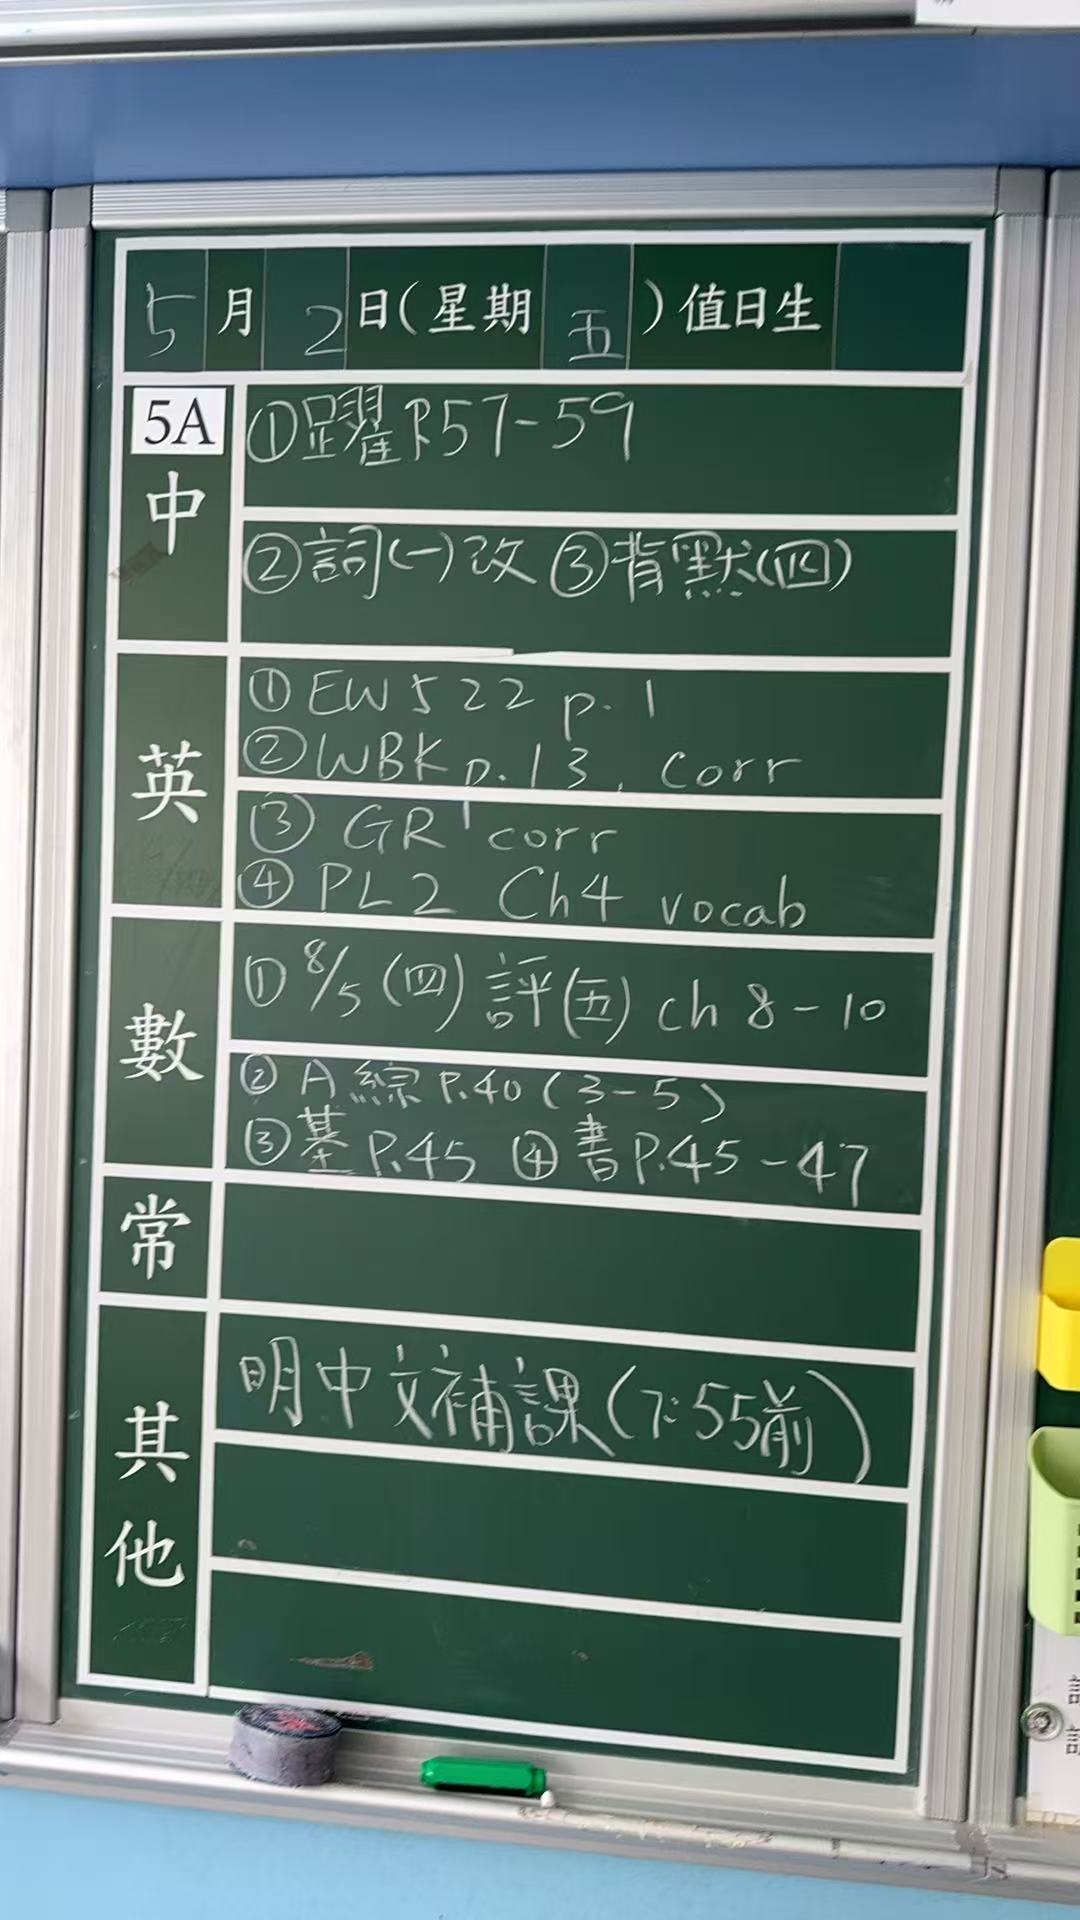 5月2日(星期五)值日生
5A
中
①躍P.57-59
②詞(一)改 ③背默(四)
英
① EW522 p.1
② WBK p.13, corr
③ GR1 corr
④ PL2 Ch4 vocab
數
① 8/5 (四) 評(五) ch 8-10
② A綜P.40(3-5)
③ 基P.45 ④ 書P.45-47
常
其他
明中文補課(7:55前)